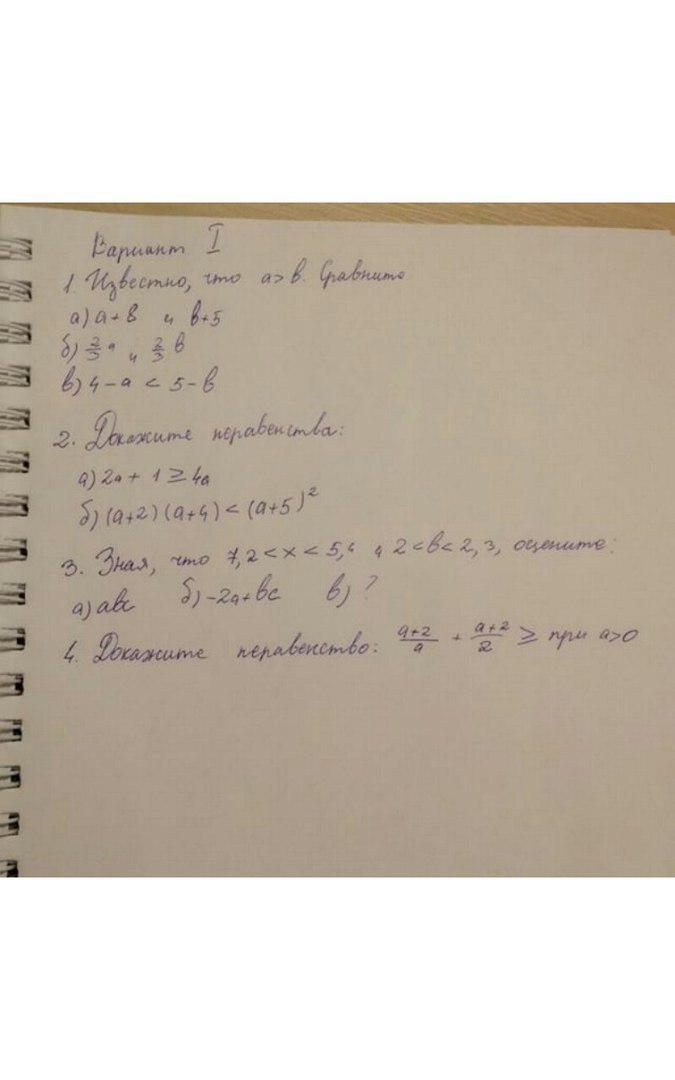 Вариант I
1. Известно, что a > b. Сравните
а) a + 8 и b + 5
б) 2/3 a и 2/3 b
в) 4 - a < 5 - b
2. Докажите неравенства:
а) 2a + 1 ≥ 4a
б) (a+2)(a+4) < (a+5)²
3. Зная, что 7,2 < x < 5,4 и 2 < b < 2,3, оцените:
а) abc б) -2a + bc в) ?
4. Докажите неравенство: (a+2)/a + (a+2)/2 ≥ при a>0